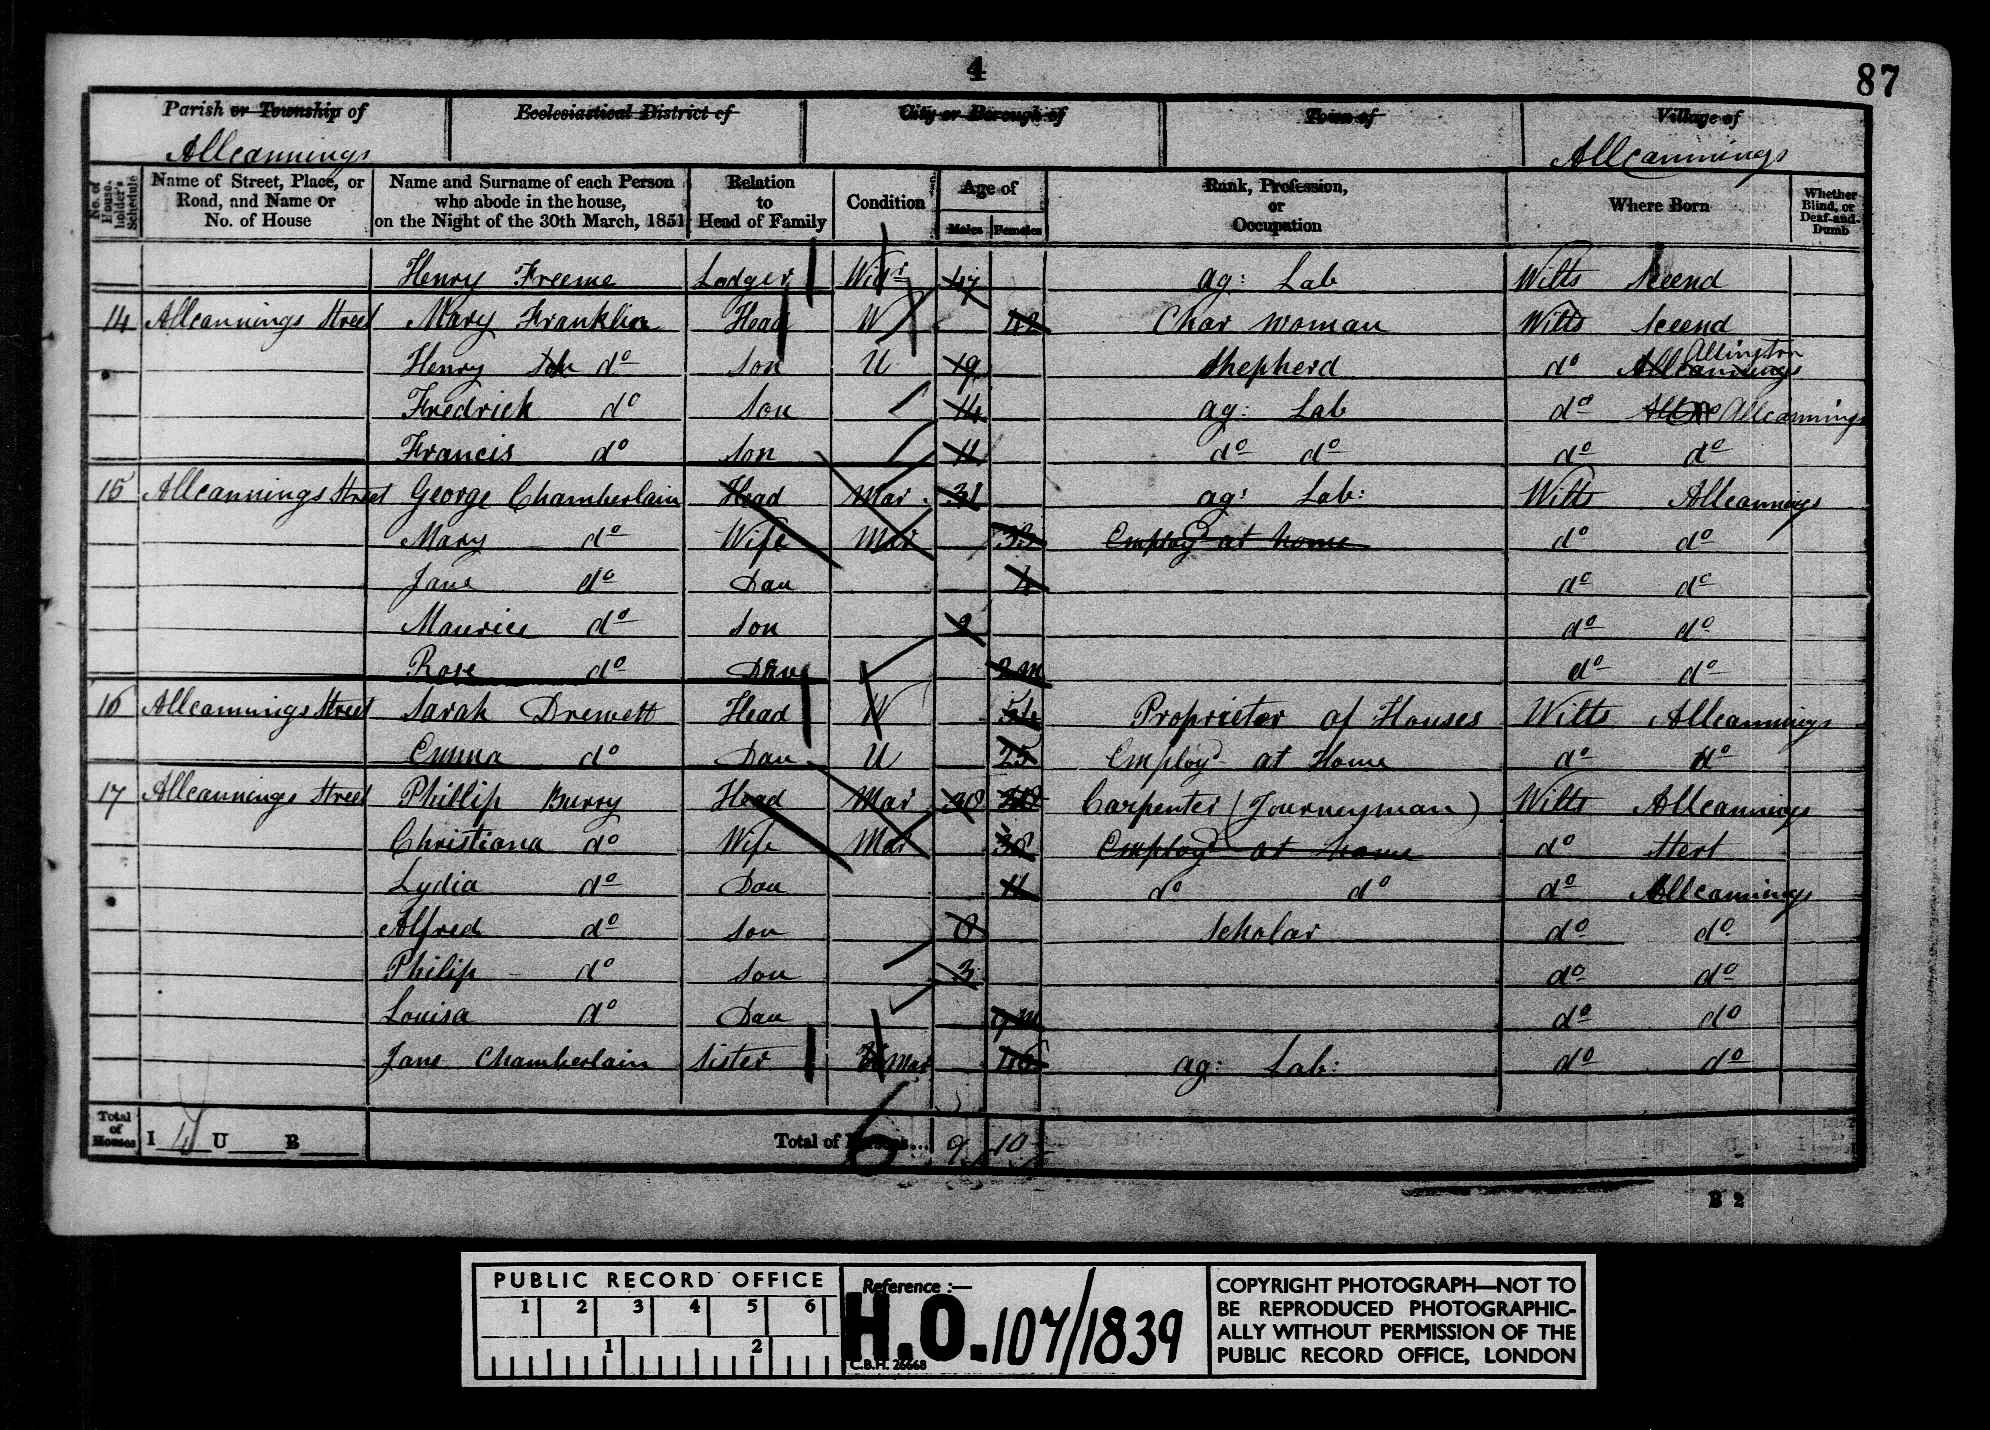 4
87
Parish or Township of
Allcannings
Ecclesiastical District of
City or Borough of
Town of
Village of
Allcannings
No. of House-holder's Schedule
Name of Street, Place, or Road, and Name or No. of House
Name and Surname of each Person who abode in the house, on the Night of the 30th March, 1851
Relation to Head of Family
Condition
Age of
Males Females
Rank, Profession, or Occupation
Where Born
Whether Blind, or Deaf-and-Dumb
Henry Freeme Lodger Widr 47 ag: Lab Wilts Seend
14 Allcannings Street Mary Franklin Head W 42 Char woman Wilts Seend
Henry do Son U 19 Shepherd do Allcannings Allington
Fredrick do Son 14 ag: Lab do Allcannings
Francis do Son 11 do do do do
15 Allcannings Street George Chamberlain Head Mar 31 ag: Lab: Wilts Allcannings
Mary do Wife Mar Employd at home do do
Jane do Dau 4 do do
Maurice do Son 2 do do
Rose do Dau 2m do do
16 Allcannings Street Sarah Drewett Head W 54 Proprietor of Houses Wilts Allcannings
Emma do Dau U 25 Employd at Home do do
17 Allcannings Street Phillip Burry Head Mar 38 Carpenter (Journeyman) Wilts Allcannings
Christiana do Wife Mar 38 Employd at home do Stert
Lydia do Dau 11 do do do Allcannings
Alfred do Son 8 Scholar do do
Philip do Son 3 do do
Louisa do Dau 9m do do
Jane Chamberlain Sister Mar 46 ag: Lab: do do
Total of Houses I 4 U B Total of Persons... 9 10
6
B 2
PUBLIC RECORD OFFICE
1 2 3 4 5 6
1 2
Reference :—
H.O. 107/1839
C.B.H. 26668
COPYRIGHT PHOTOGRAPH—NOT TO
BE REPRODUCED PHOTOGRAPHIC-
ALLY WITHOUT PERMISSION OF THE
PUBLIC RECORD OFFICE, LONDON